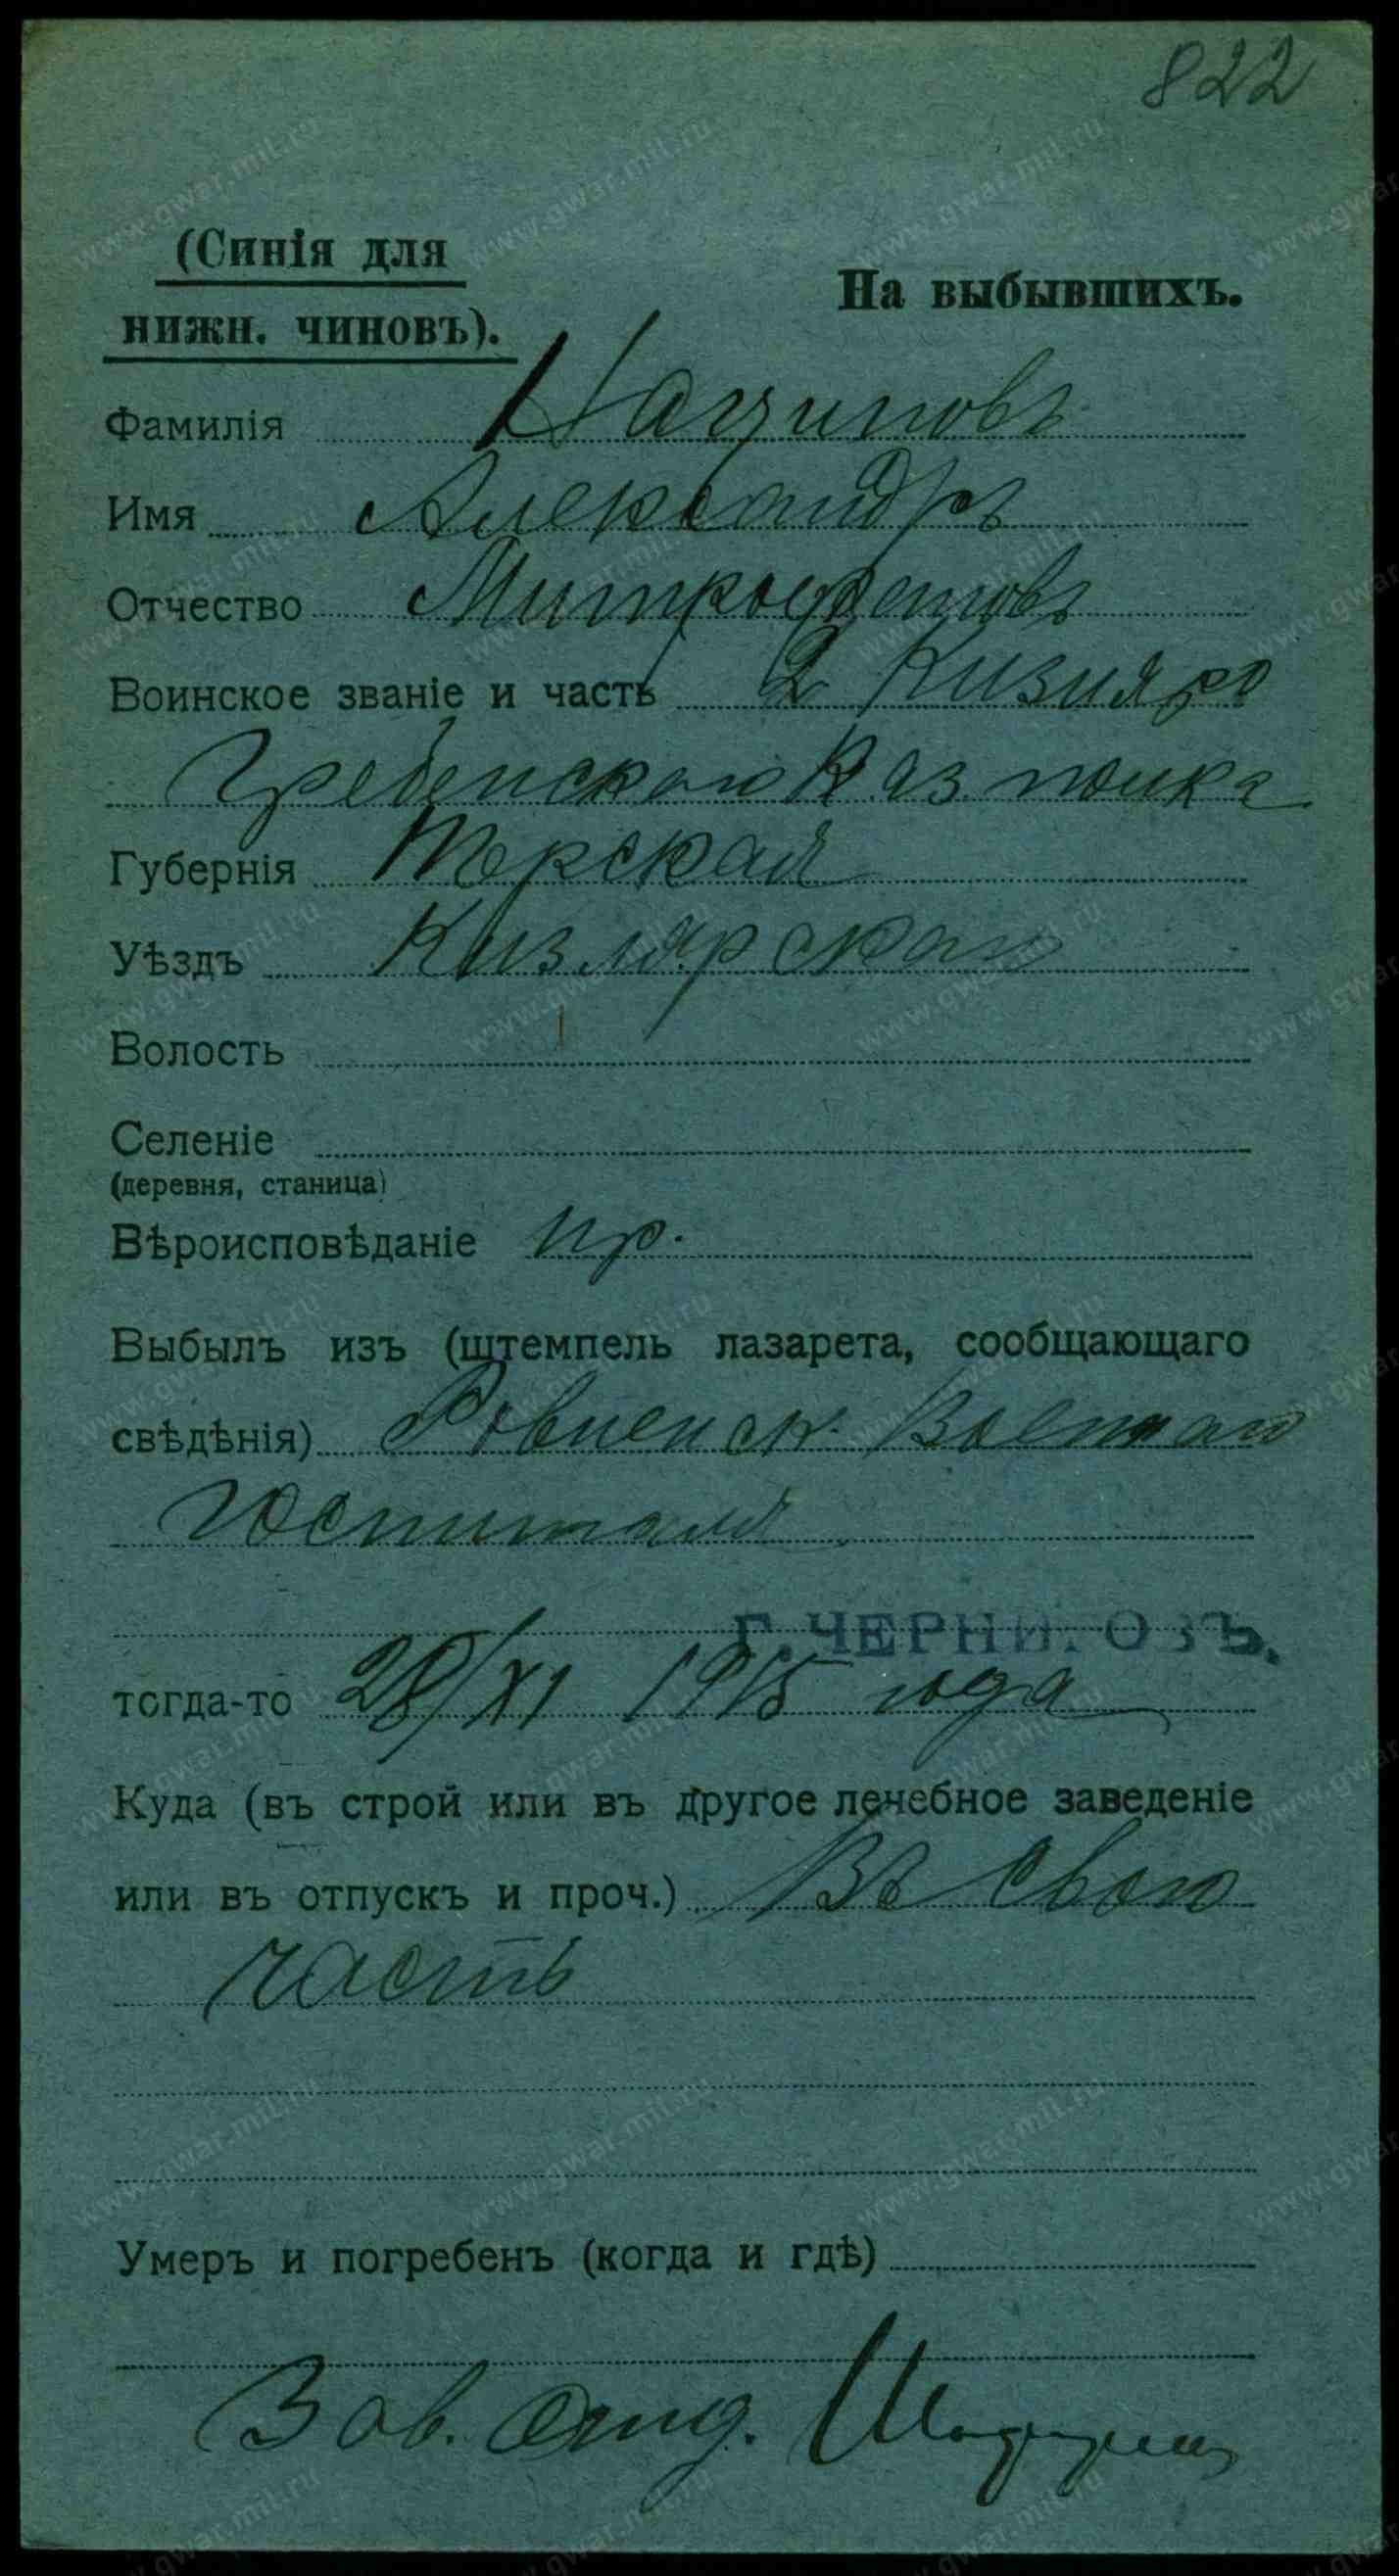 822
(Синія для
нижн. чиновъ).
На выбывшихъ.
Фамилія
Имя Александръ
Отчество
Воинское званіе и часть 2 Кизляро
Гребенскаго Каз. полка
Губернія Терская
Уѣздъ Кизлярскаго
Волость
Селеніе
(деревня, станица)
Вѣроисповѣданіе пр.
Выбылъ изъ (штемпель лазарета, сообщающаго
свѣдѣнія) Ровненск. Военнаго
Госпиталя
Г. ЧЕРНИГОВЪ.
тогда-то 28/XI 1915 года
Куда (въ строй или въ другое лечебное заведеніе
или въ отпускъ и проч.) Въ свою
часть
Умеръ и погребенъ (когда и гдѣ)
Зав. Отд.
www.gwar.mil.ru